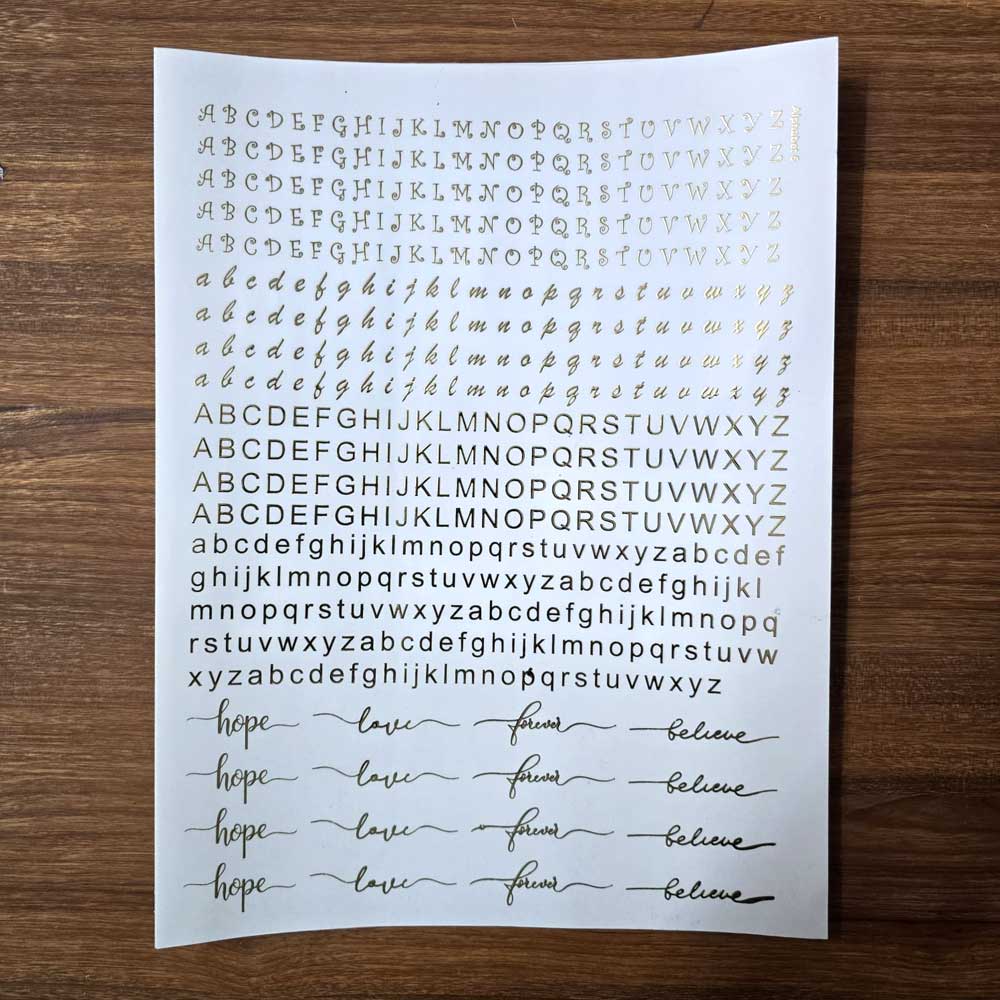 A B C D E F G H I J K L M N O P Q R S T U V W X Y Z
A B C D E F G H I J K L M N O P Q R S T U V W X Y Z
A B C D E F G H I J K L M N O P Q R S T U V W X Y Z
A B C D E F G H I J K L M N O P Q R S T U V W X Y Z
A B C D E F G H I J K L M N O P Q R S T U V W X Y Z
a b c d e f g h i j k l m n o p q r s t u v w x y z
a b c d e f g h i j k l m n o p q r s t u v w x y z
a b c d e f g h i j k l m n o p q r s t u v w x y z
a b c d e f g h i j k l m n o p q r s t u v w x y z
ABCDEFGHIJKLMNOPQRSTUVWXYZ
ABCDEFGHIJKLMNOPQRSTUVWXYZ
ABCDEFGHIJKLMNOPQRSTUVWXYZ
ABCDEFGHIJKLMNOPQRSTUVWXYZ
abcdefghijklmnopqrstuvwxyzabcdef
ghijklmnopqrstuvwxyzabcdefghijkl
mnopqrstuvwxyzabcdefghijklmnopq
rstuvwxyzabcdefghijklmnopqrstuvw
xyzabcdefghijklmnopqrstuvwxyz
hope love forever believe
hope love forever believe
hope love forever believe
hope love forever believe